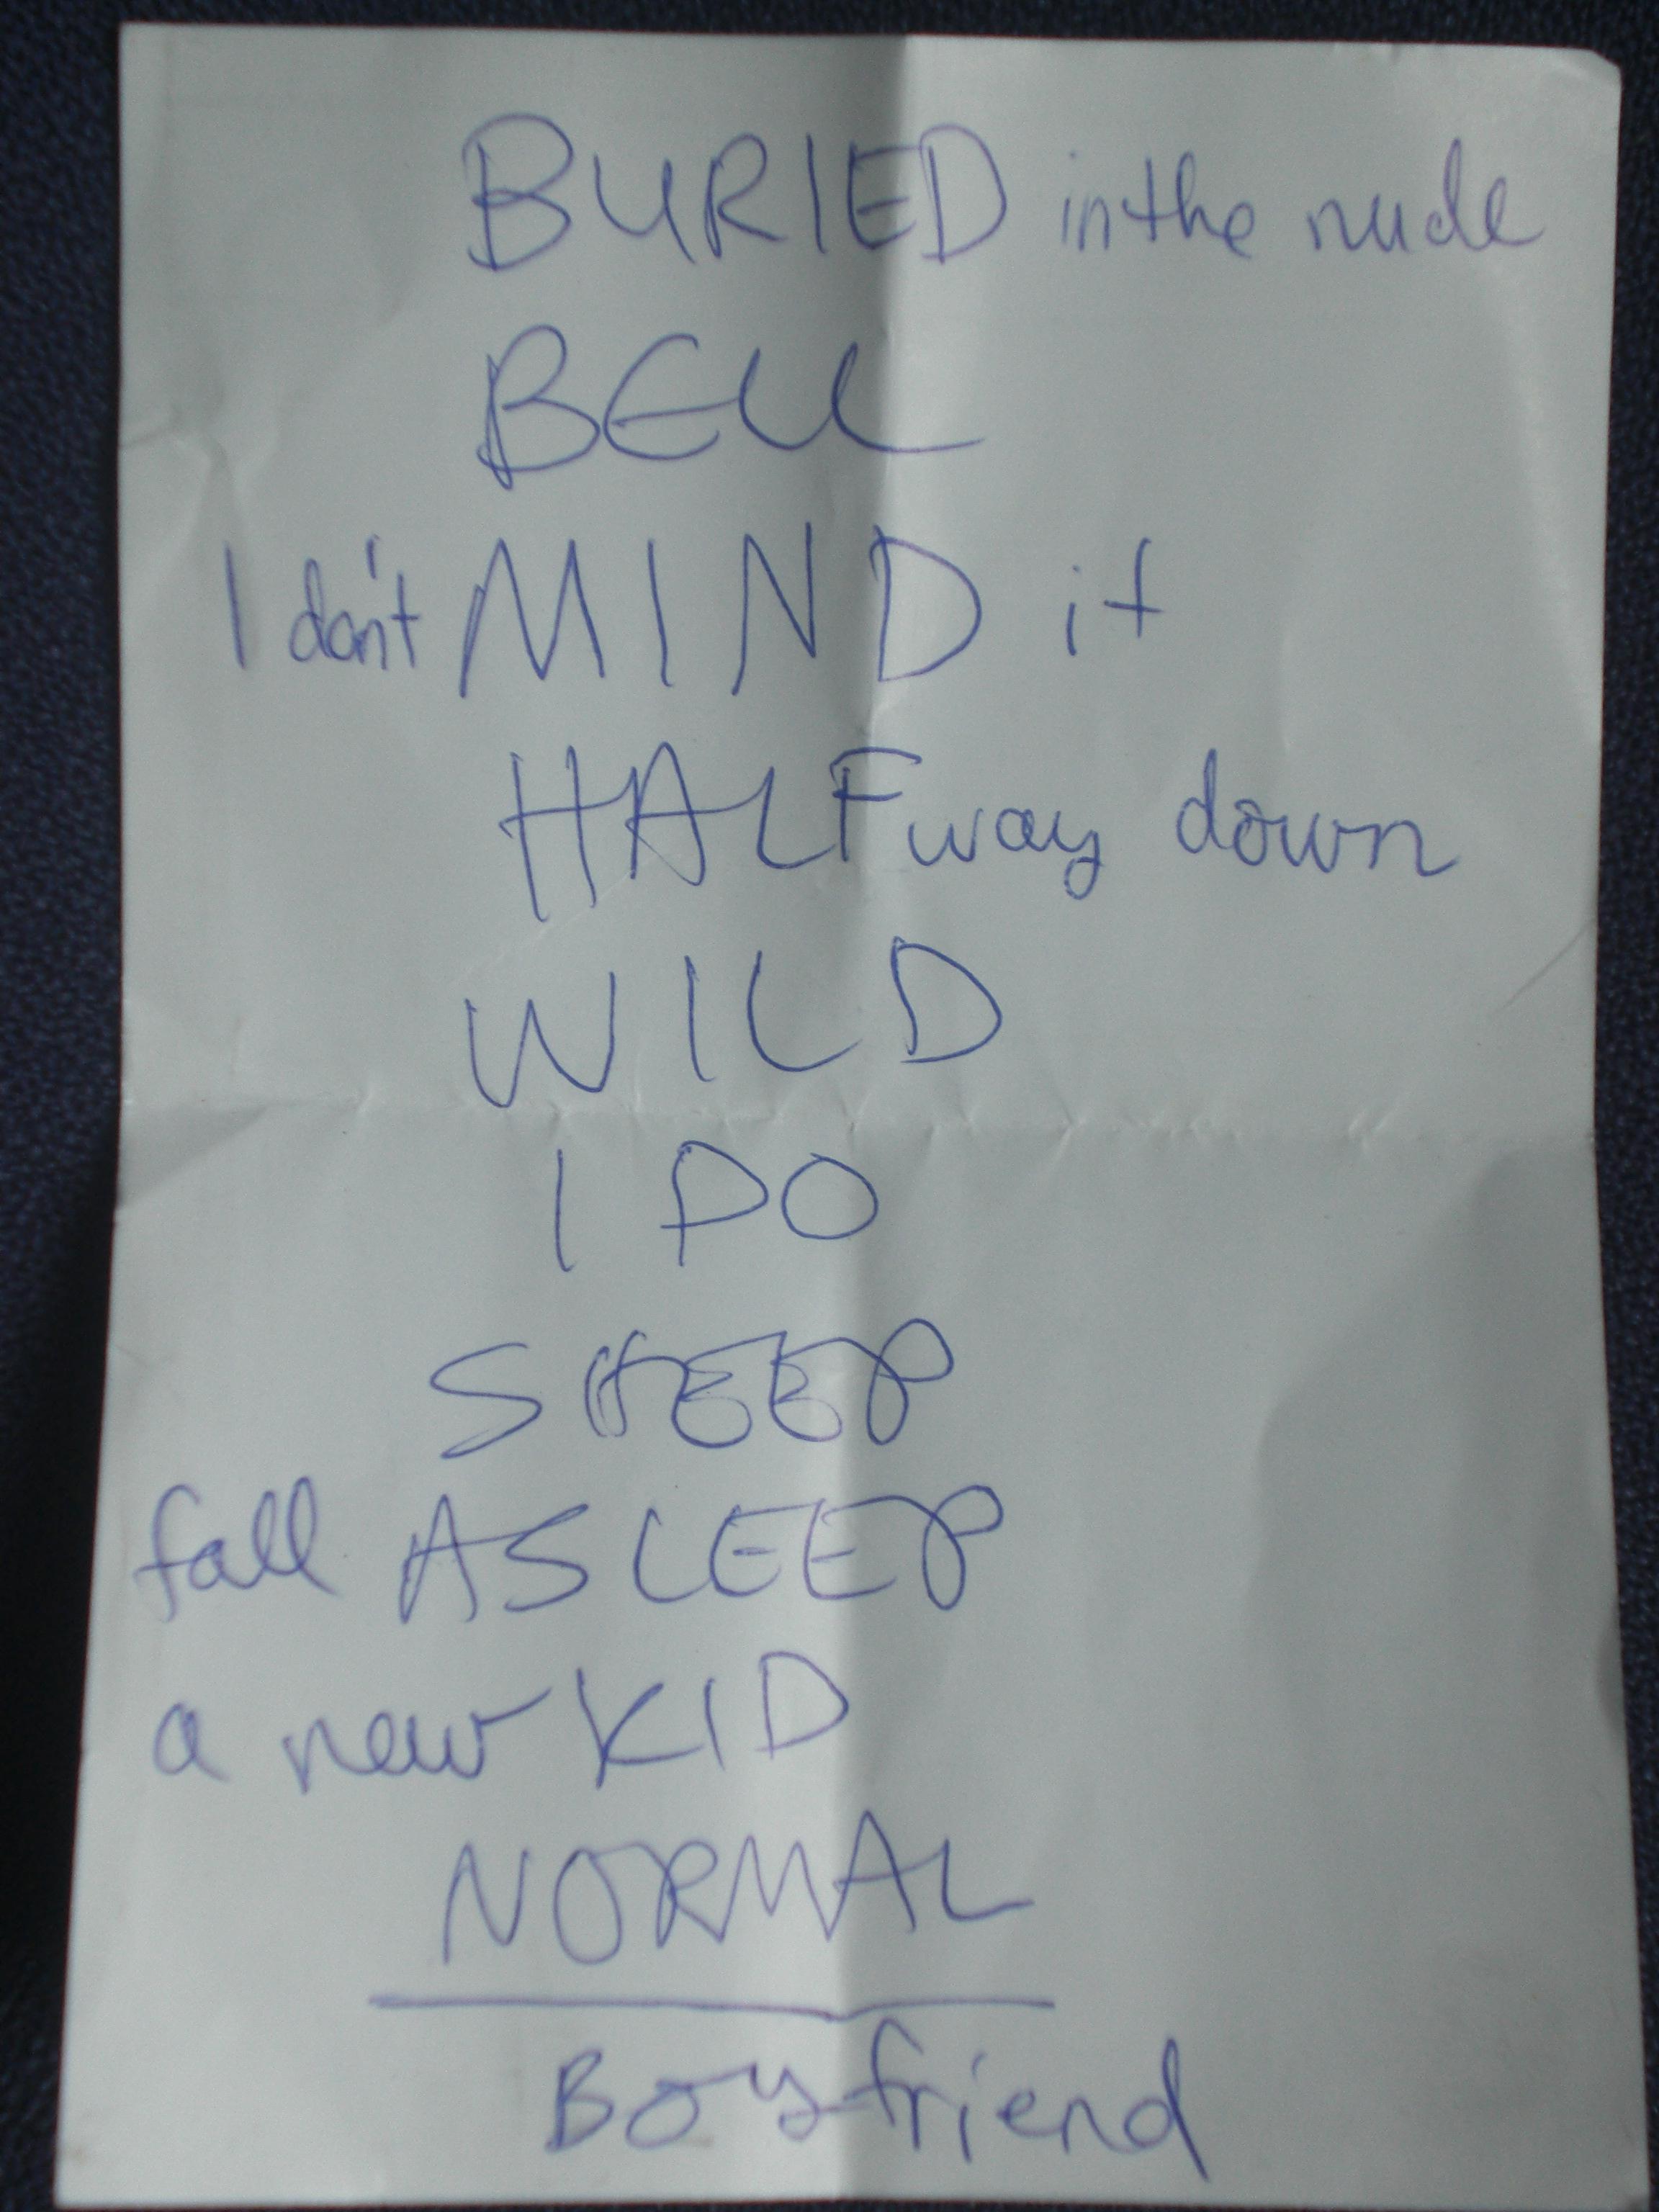 BURIED in the nude
BELL
I don't MIND it
HALFway down
WILD
I DO
SHEEP
fall ASLEEP
a new KID
NORMAL
Boyfriend